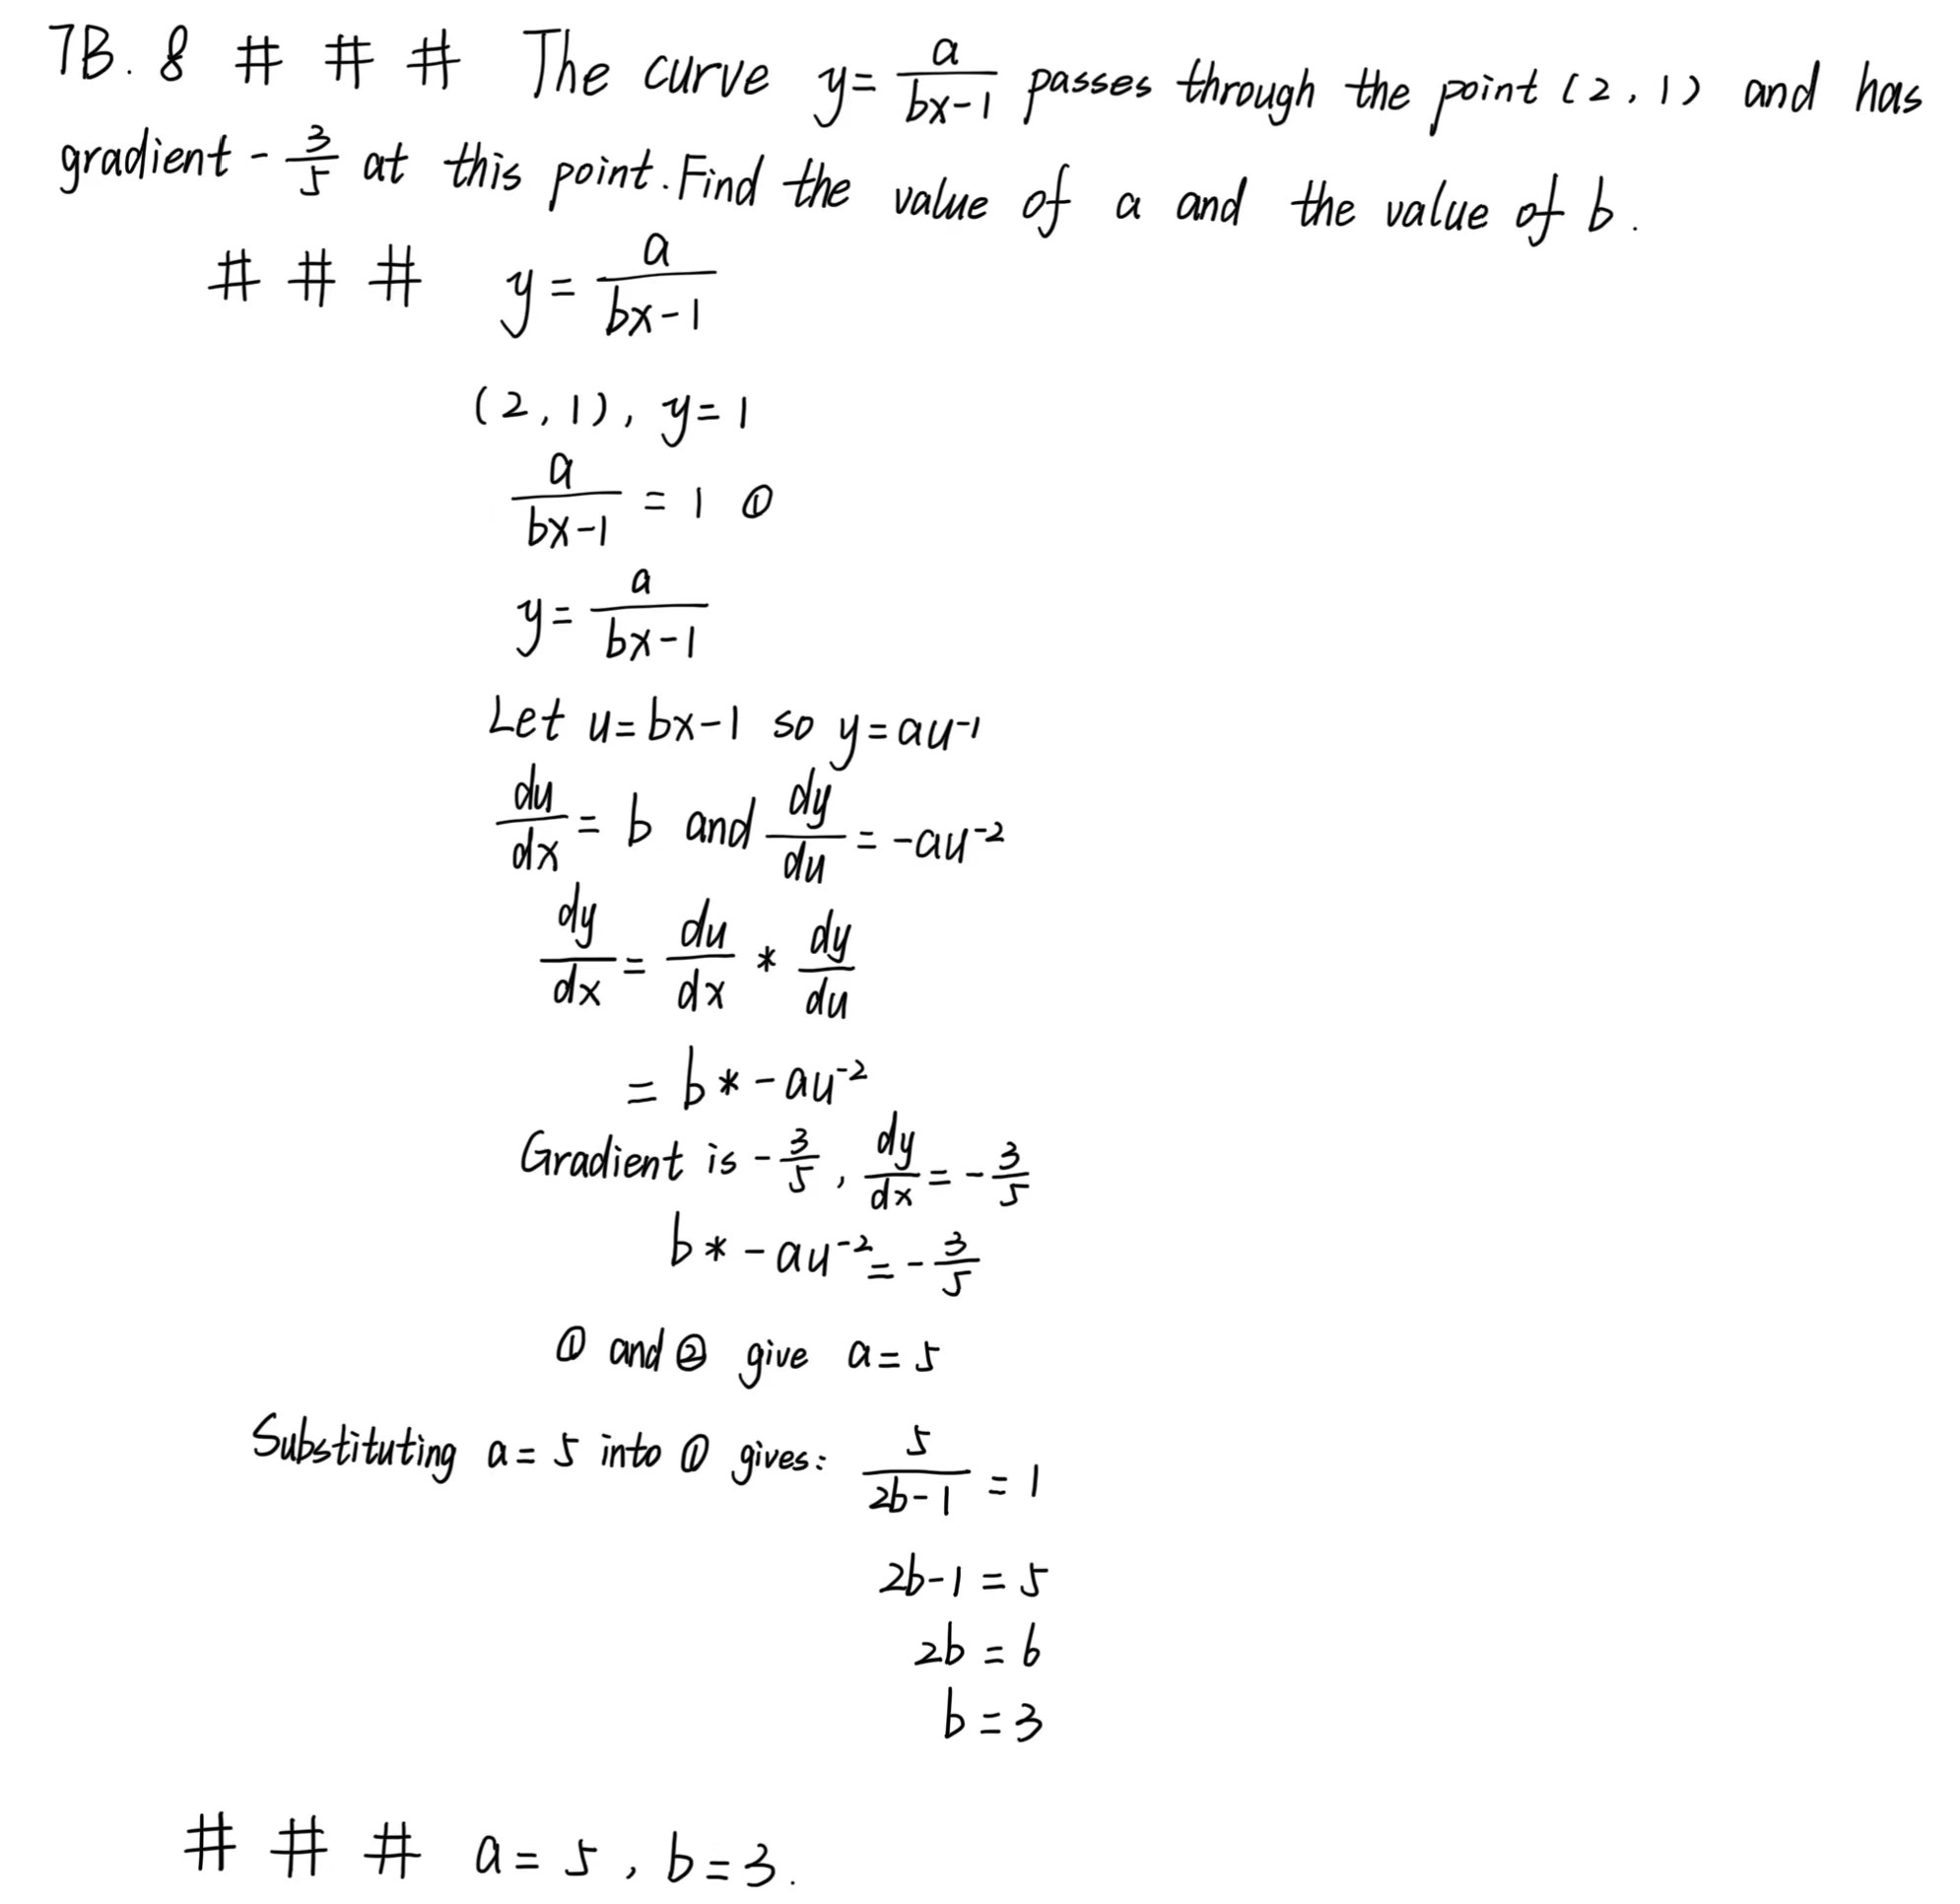 7B. 8 # # # The curve y = \frac{a}{bx-1} passes through the point (2, 1) and has
gradient - \frac{3}{5} at this point. Find the value of a and the value of b.
# # # y = \frac{a}{bx-1}
(2, 1), y = 1
\frac{a}{bx-1} = 1 ①
y = \frac{a}{bx-1}
Let u = bx-1 so y = au^{-1}
\frac{du}{dx} = b and \frac{dy}{du} = -au^{-2}
\frac{dy}{dx} = \frac{du}{dx} * \frac{dy}{du}
= b * -au^{-2}
Gradient is -\frac{3}{5}, \frac{dy}{dx} = -\frac{3}{5}
b * -au^{-2} = -\frac{3}{5}
① and ② give a = 5
Substituting a = 5 into ① gives: \frac{5}{2b-1} = 1
2b-1 = 5
2b = 6
b = 3
# # # a = 5, b = 3.